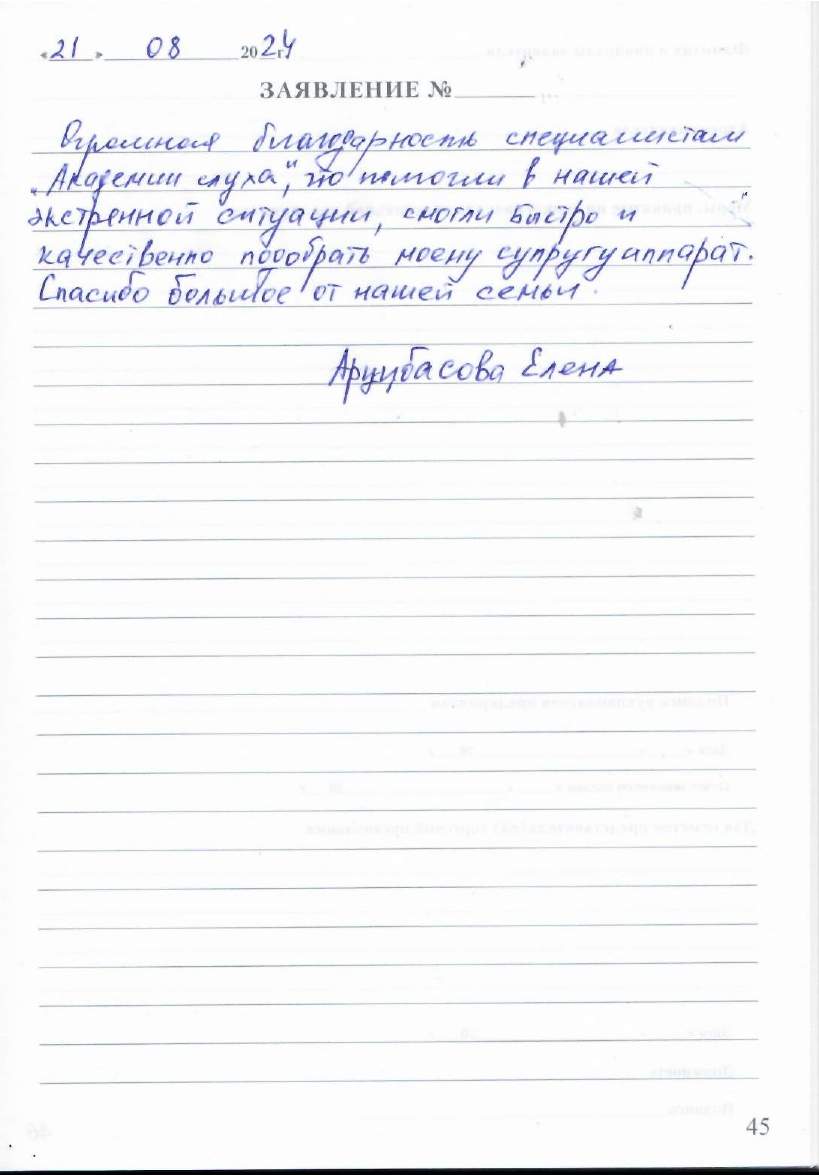 «21» 08 2024г.
ЗАЯВЛЕНИЕ №
Огромная благодарность специалистам
„Академии слуха", что помогли в нашей
экстренной ситуации, смогли быстро и
качественно подобрать моему супругу аппарат.
Спасибо большое от нашей семьи.
Елена
45